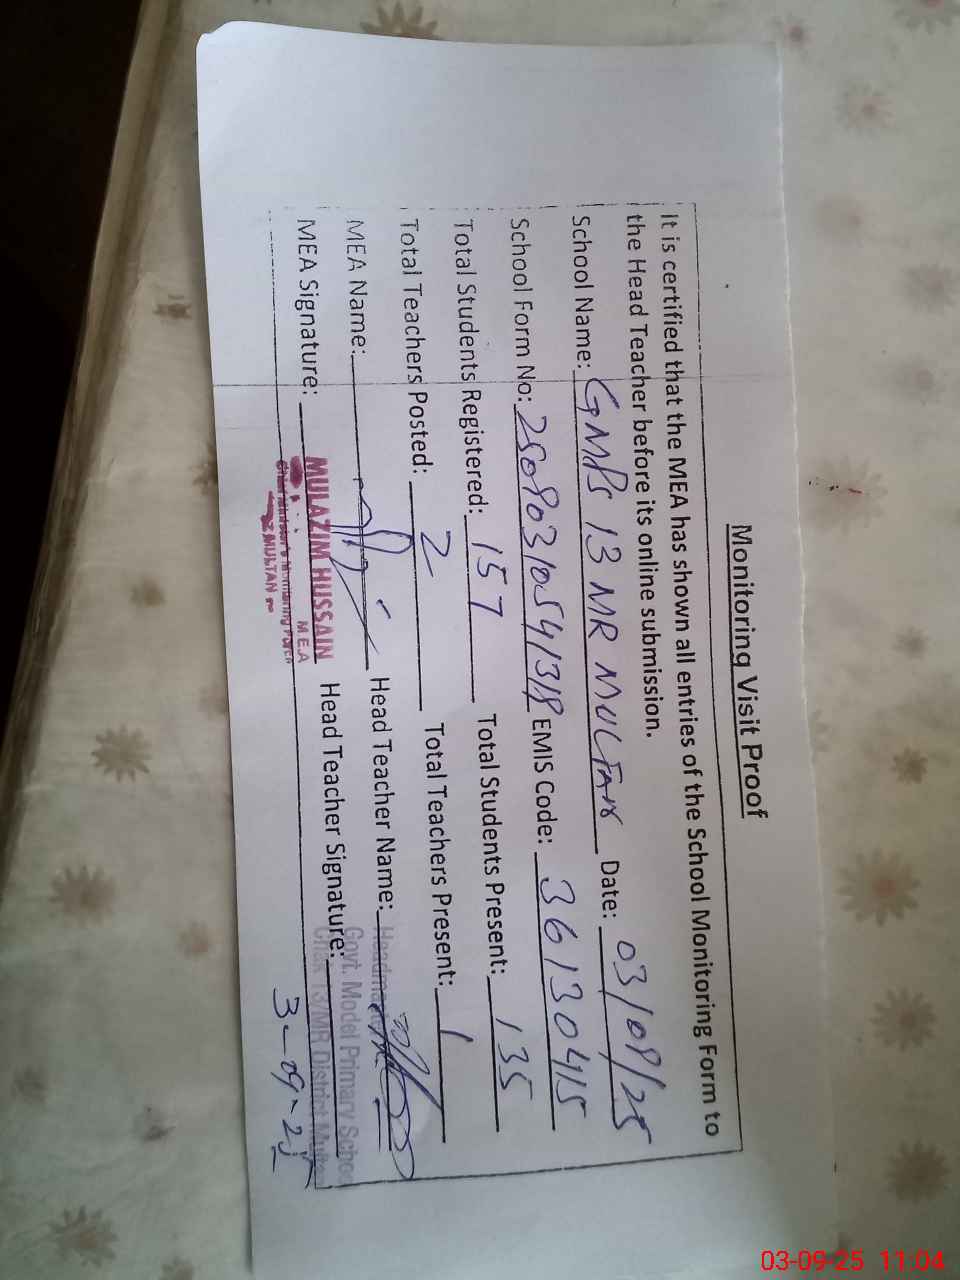 Monitoring Visit Proof
It is certified that the MEA has shown all entries of the School Monitoring Form to
the Head Teacher before its online submission.
School Name: GMPS 13 MR MULTAN Date: 03/09/25
School Form No: 25090310541318 EMIS Code: 36130415
Total Students Registered: 157 Total Students Present: 135
Total Teachers Posted: 2 Total Teachers Present: 1
MEA Name: Head Teacher Name:
MEA Signature: Head Teacher Signature:
MULAZIM HUSSAIN
M.E.A
MULTAN
Govt. Model Primary School
Chak 13/MR District Multan
3-09-25
03-09-25 11:04